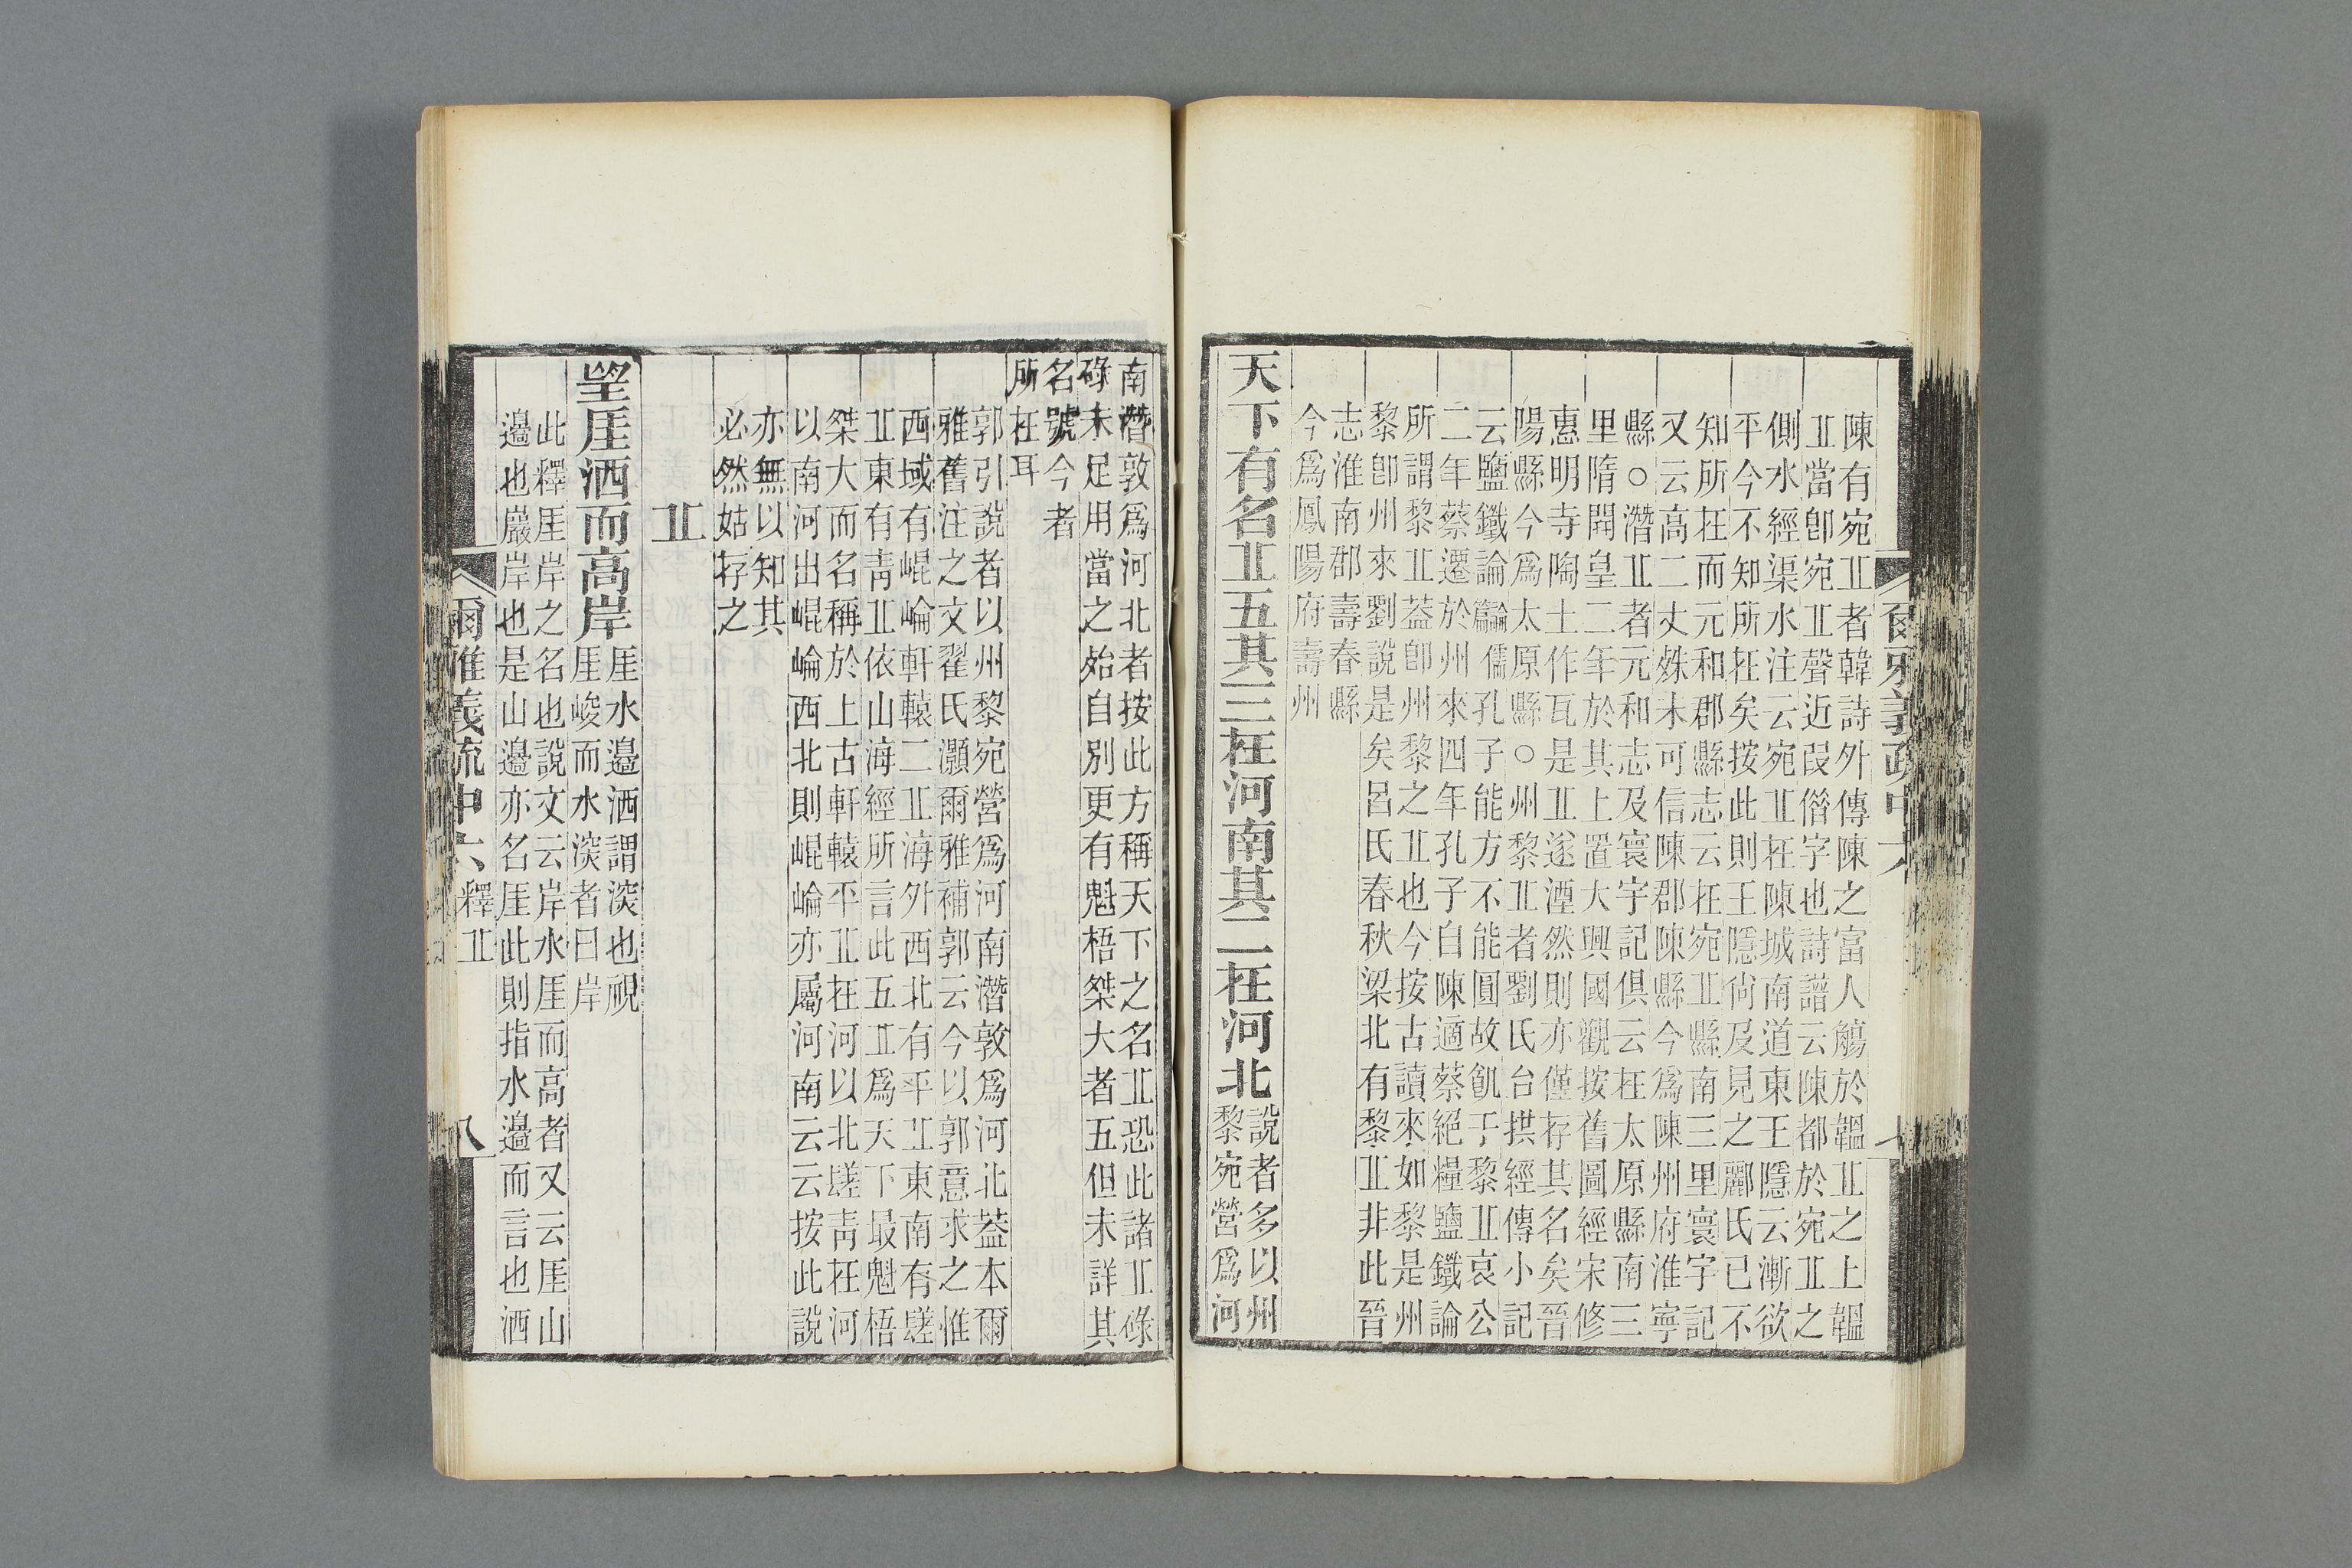 陳有宛丠者韓詩外傳陳之富人觴於韞丠之上韞
丠當卽宛丠聲近叚偺字也詩譜云陳都於宛丠之
側水經渠水注云宛丠在陳城南道東王隱云漸欲
平今不知所在矣按此則王隱尙及見之酈氏已不
知所在而元和郡縣志云在宛丠縣南三里寰宇記
又云高二丈姝未可信陳郡陳縣今爲陳州府淮寧
縣○潛丠者元和志及寰宇記俱云在太原縣南三
里隋開皇二年於其上置大興國觀按舊圖經宋修
惠明寺陶土作瓦是丠遂湮然則亦僅存其名矣晉
陽縣今爲太原縣○州黎丠者劉氏台拱經傳小記
云鹽鐵論論儒篇孔子能方不能圓故飢于黎丠哀公
二年蔡遷於州來四年孔子自陳適蔡絕糧鹽鐵論
所謂黎丠葢卽州黎之丠也今按古讀來如黎是州
黎卽州來劉說是矣呂氏春秋梁北有黎丠非此晉
志淮南郡壽春縣
今爲鳳陽府壽州
天下有名丠五其三在河南其二在河北
說者多以州
黎宛營爲河
爾雅義疏中六
七
南潛敦爲河北者按此方稱天下之名丠恐此諸丠碌
碌未足用當之殆自別更有魁梧桀大者五但未詳其
名號今者
所在耳
郭引說者以州黎宛營爲河南潛敦爲河北葢本爾
雅舊注之文翟氏灝爾雅補郭云今以郭意求之惟
西域有崐崘軒轅二丠海外西北有平丠東南有䟿
丠東有靑丠依山海經所言此五丠爲天下最魁梧
桀大而名稱於上古軒轅平丠在河以北䟿靑在河
以南河出崐崘西北則崐崘亦屬河南云云按此說
亦無以知其
必然姑存之
丠
望厓洒而高岸
厓水邉洒謂㴱也視
厓峻而水㴱者曰岸
此釋厓岸之名也說文云岸水厓而高者又云厓山
邉也巖岸也是山邉亦名厓此則指水邉而言也洒
爾雅義疏中六
釋丠
八